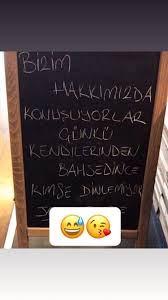 BİZİM
HAKKIMIZDA
KONUŞUYORLAR
ÇÜNKÜ
KENDİLERİNDEN
BAHSEDİNCE
KİMSE DİNLEMİYOR